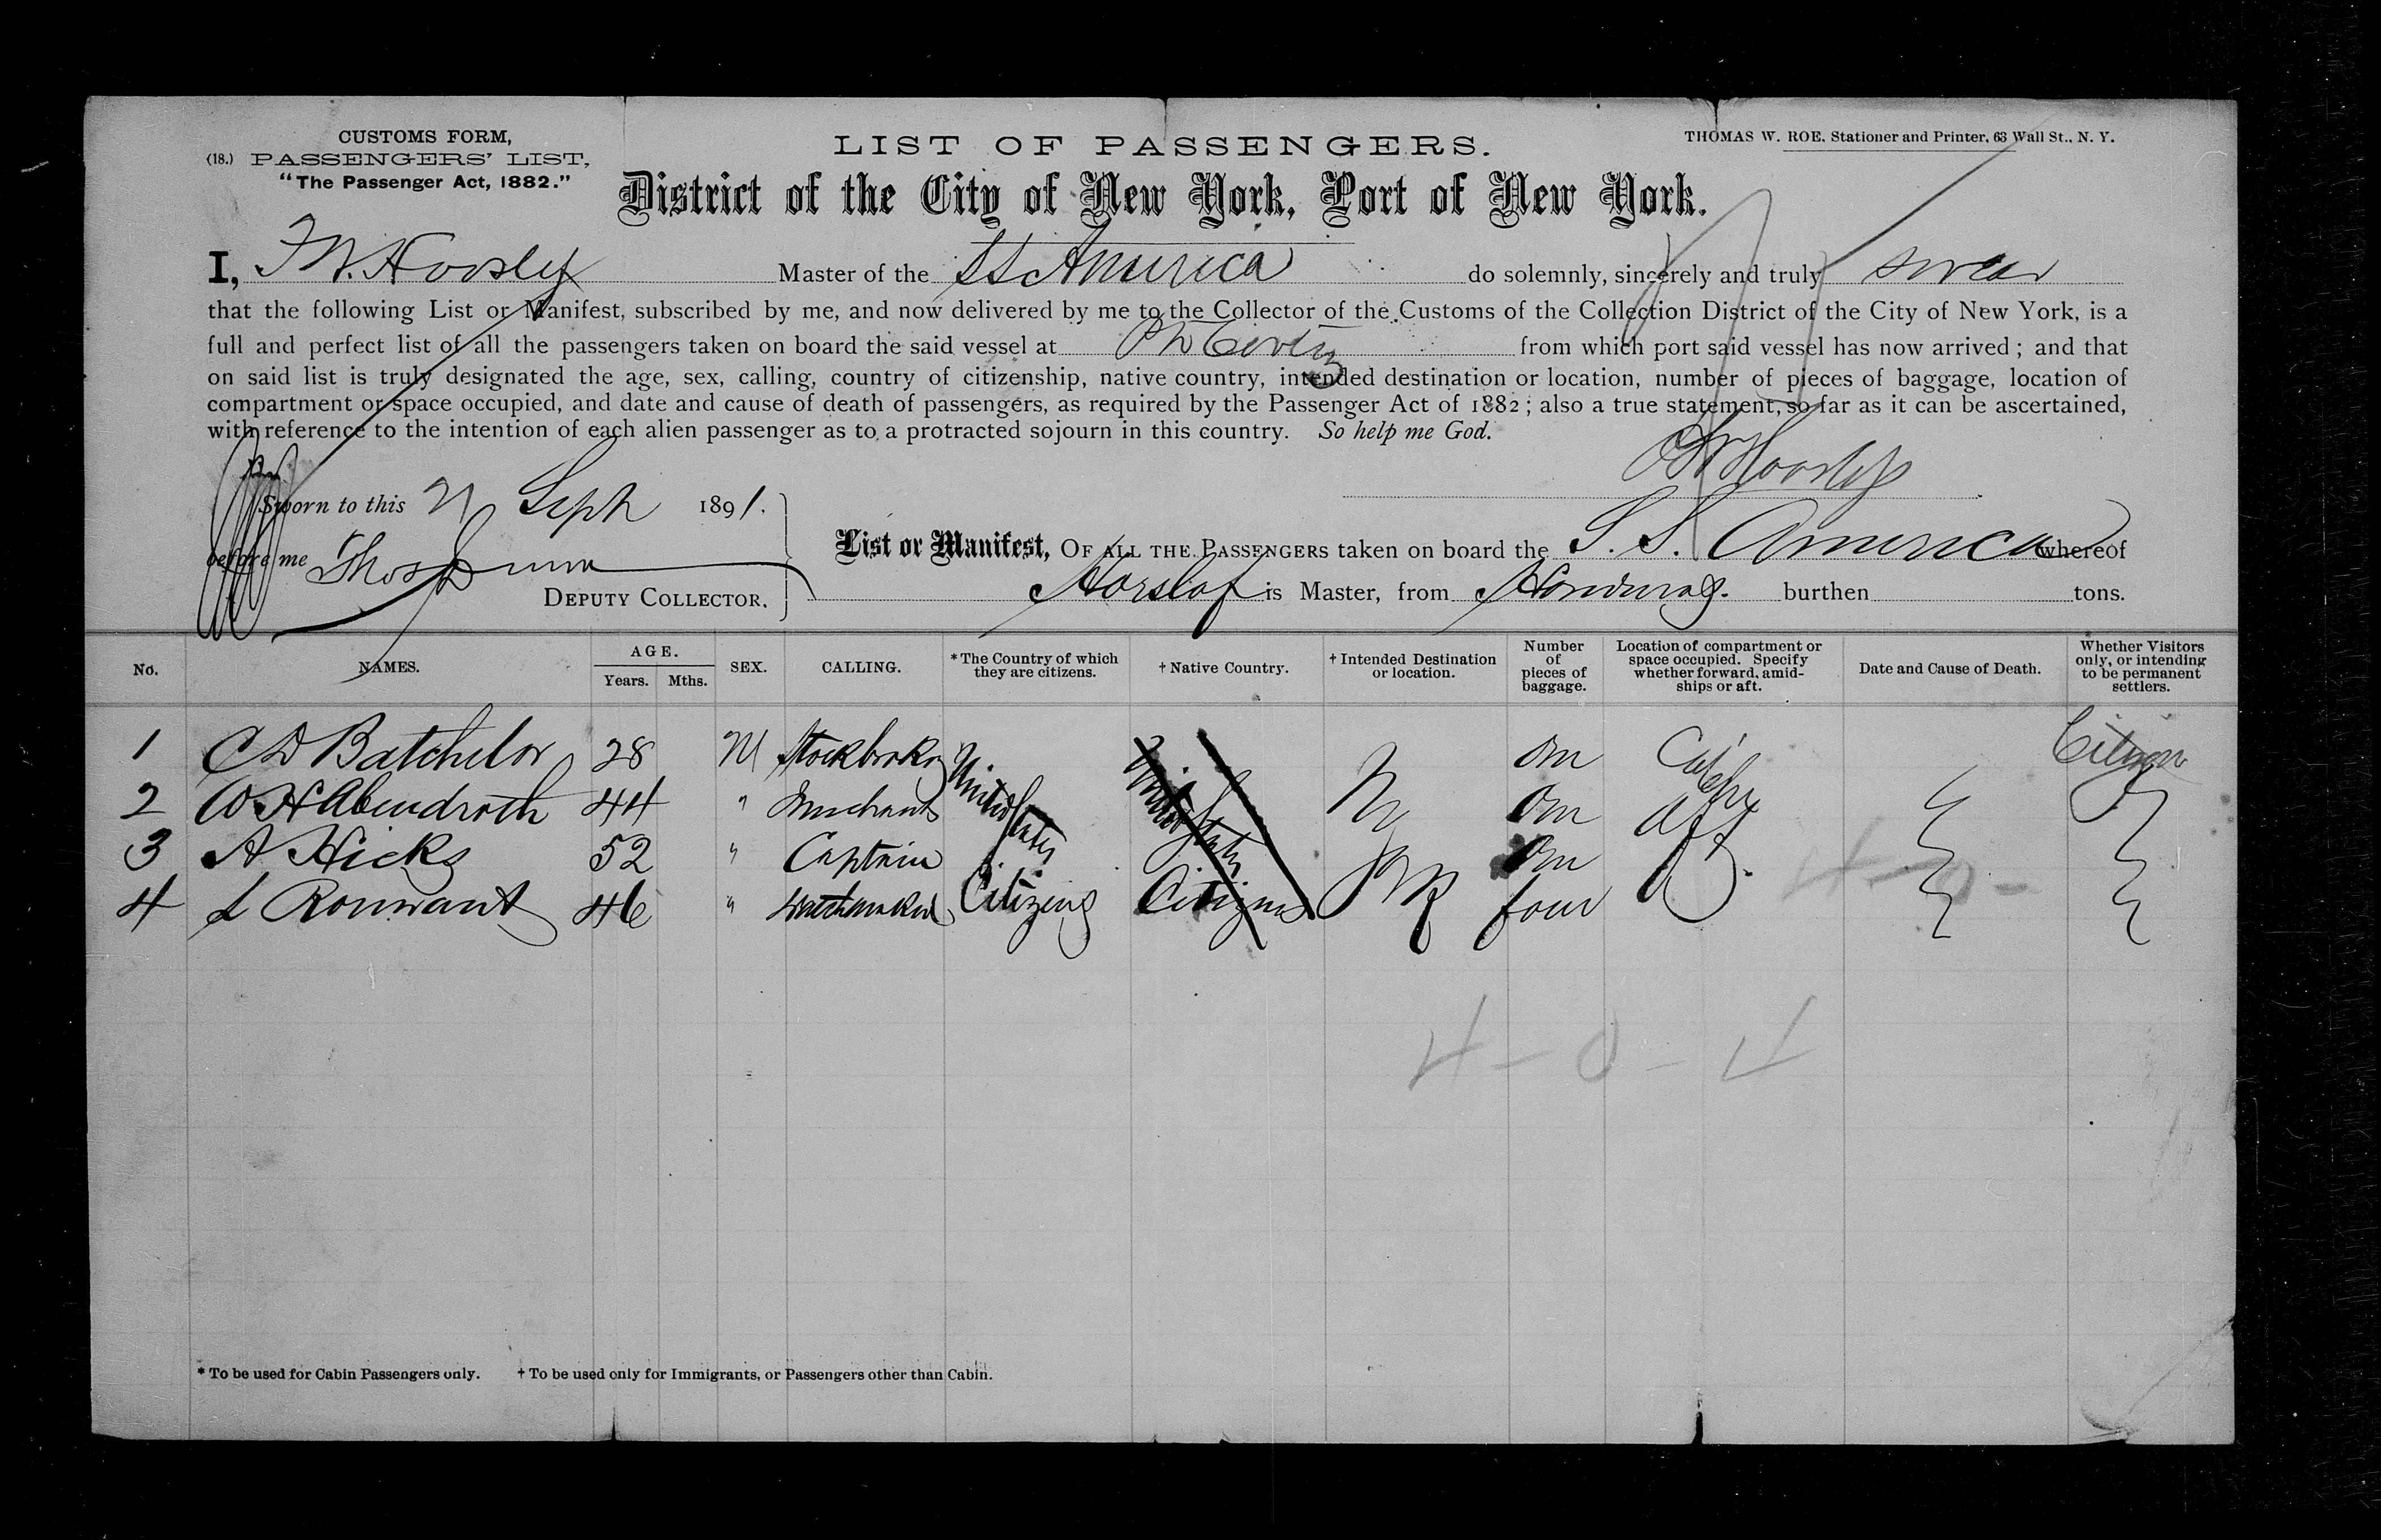 CUSTOMS FORM,
(18.) PASSENGERS' LIST,
"The Passenger Act, 1882."
LIST OF PASSENGERS.
THOMAS W. ROE, Stationer and Printer, 63 Wall St., N. Y.
District of the City of New York, Port of New York.
I, Master of the SS America do solemnly, sincerely and truly swear
that the following List or Manifest, subscribed by me, and now delivered by me to the Collector of the Customs of the Collection District of the City of New York, is a
full and perfect list of all the passengers taken on board the said vessel at from which port said vessel has now arrived; and that
on said list is truly designated the age, sex, calling, country of citizenship, native country, intended destination or location, number of pieces of baggage, location of
compartment or space occupied, and date and cause of death of passengers, as required by the Passenger Act of 1882; also a true statement, so far as it can be ascertained,
with reference to the intention of each alien passenger as to a protracted sojourn in this country. So help me God.
Sworn to this 21 Sept 1891.
before me Thos Dunn
DEPUTY COLLECTOR.
List or Manifest, OF ALL THE PASSENGERS taken on board the S. S. America whereof
is Master, from Honduras. burthen tons.
No. NAMES. AGE. Years. Mths. SEX. CALLING. *The Country of which they are citizens. †Native Country. †Intended Destination or location. Number of pieces of baggage. Location of compartment or space occupied. Specify whether forward, amidships or aft. Date and Cause of Death. Whether Visitors only, or intending to be permanent settlers.
1 C D Batchelor 28 M Stockbroker United States Citizens United States Citizens N Y on Cabin Aft Citizen
2 W H Abendroth 44 " Merchant on
3 A Hicks 52 " Captain on
4 L Ronwant 46 " Watchmaker four
4-0-
4-0-4
* To be used for Cabin Passengers only. † To be used only for Immigrants, or Passengers other than Cabin.